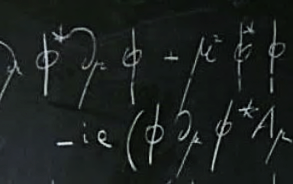 ∂_μ ϕ* ∂_μ ϕ - μ² ϕ* ϕ
- ie (ϕ ∂_μ ϕ* A_μ